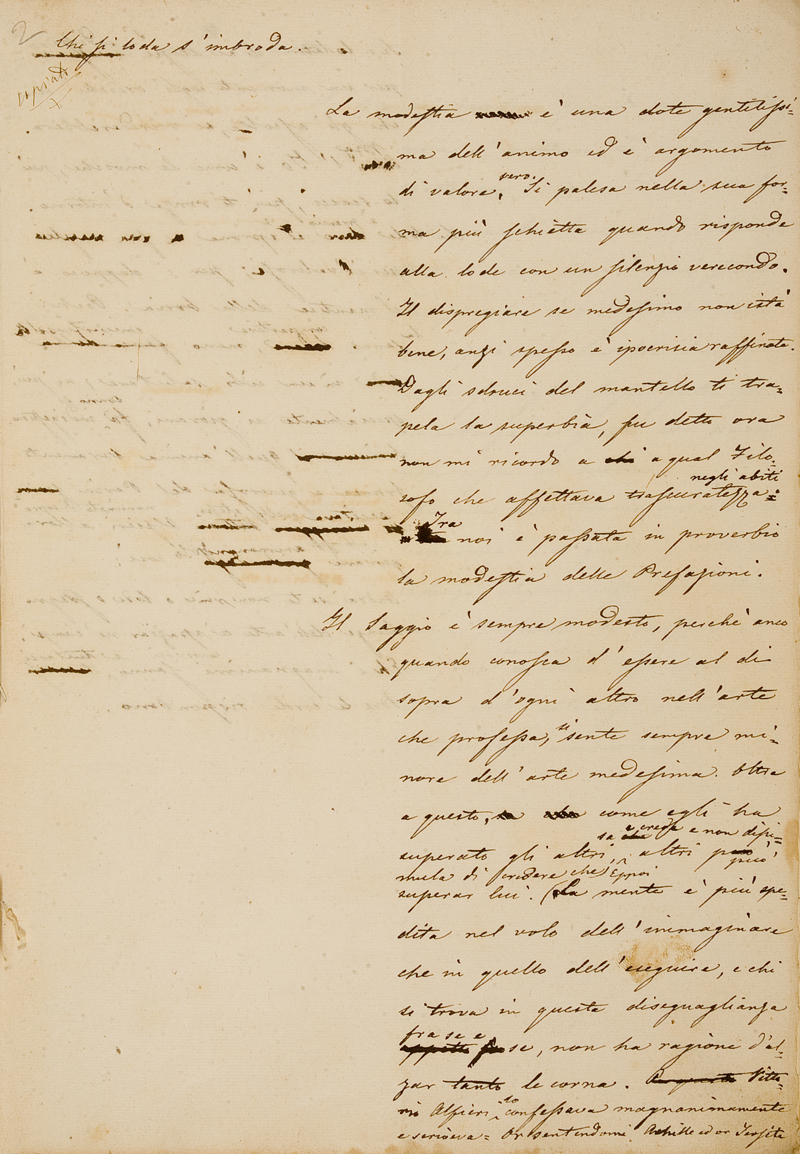 2
Chi si loda s'imbroda.
copiato
La modestia è una dote gentilissi=
ma dell'animo ed è argomento
di valore vero. Si palesa nella sua for=
ma più schietta quando risponde
alla lode con un silenzio verecondo.
Il dispregiare se medesimo non istà
bene, anzi spesso è ipocrisia raffinata.
Dagli sdruci del mantello ti tra=
pela la superbia, fu detto ora
non mi ricordo a chi a qual Filo=
negli abiti
sofo che affettava trascuratezza:
Tra
noi è passata in proverbio
la modestia delle Prefazioni.
Il Saggio è sempre modesto, perchè anco
quando conosca d'essere al di
sopra d'ogni altro nell'arte
che professa, si sente sempre mi=
nore dell'arte medesima. Oltre
a questo, come egli ha
sa e crede e non dissi=
superato gli altri, altri può
mula di credere che
superar lui. (La mente è più spe=
dita nel volo dell'immaginare
che in quello dell'eseguire, e chi
si trova in questa diseguaglianza
fra se e
se, non ha ragione d'al=
zar tanto le corna. Per questo Vitto=
rio Alfieri lo confessava magnanimamente
e scriveva = Or sentendomi Achille ed or Tersite